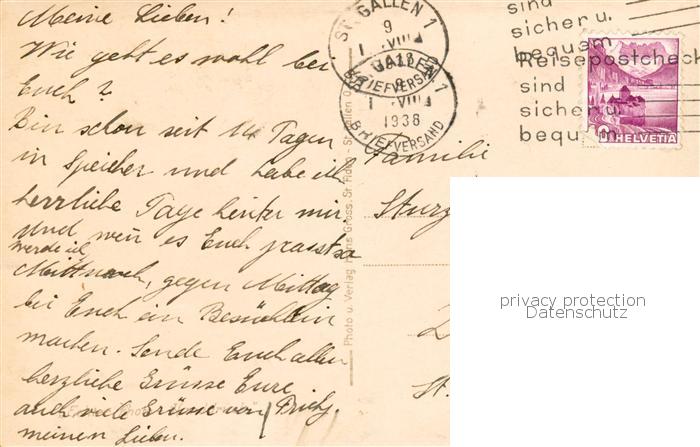 Meine Lieben!
Wie geht es wohl bei
Euch?
Bin schon seit 14 Tagen
in Speicher und habe ich
herrliche Tage hinter mir
und wen es Euch passt so
werde ich
Mittwoch, gegen Mittag
bei Euch ein Besüchlein
machen. Sende Euch allen
herzliche Grüsse Eure
auch viele Grüsse von
meinen Lieben.
ST. GALLEN 1
9
1.VIII
1938
BRIEFVERSAND
sind
sicher u.
bequem
Reisepostcheck
sind
sicher u.
bequem
HELVETIA
Familie
Sturz
St.
Photo u. Verlag Hans Gross, St. Fiden - St. Gallen
privacy protection
Datenschutz